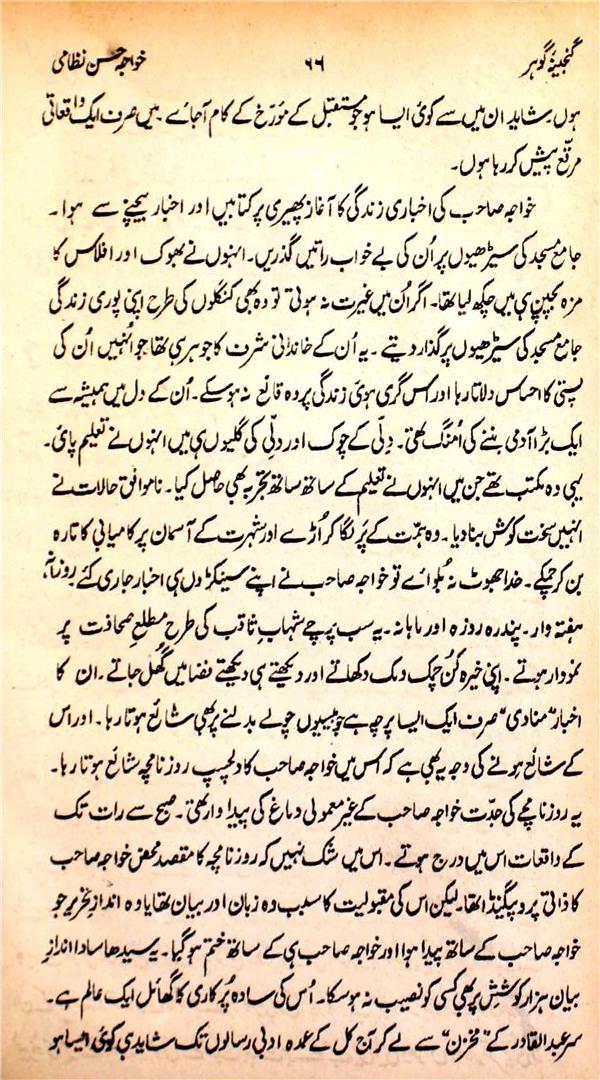 گنجینۂ گوہر ۶۶ خواجہ حسن نظامی
ہوں۔ شاید ان میں سے کوئی ایسا ہو جو مستقبل کے مؤرّخ کے کام آجائے۔ میں صرف ایک واقعاتی
مرقّع پیش کر رہا ہوں۔
خواجہ صاحب کی اخباری زندگی کا آغاز پھیری پر کتابیں اور اخبار بیچنے سے ہوا۔
جامع مسجد کی سیڑھیوں پر اُن کی بے خواب راتیں گذریں۔ انہوں نے بھوک اور افلاس کا
مزہ بچپن ہی میں چکھ لیا تھا۔ اگر اُن میں غیرت نہ ہوتی تو وہ بھی کنگلوں کی طرح اپنی پوری زندگی
جامع مسجد کی سیڑھیوں پر گذار دیتے۔ یہ اُن کے خاندانی شرف کا جوہر ہی تھا جو اُنہیں اُن کی
پستی کا احساس دلاتا رہا اور اس گری ہوئی زندگی پر وہ قانع نہ ہو سکے۔ اُن کے دل میں ہمیشہ سے
ایک بڑا آدمی بننے کی اُمنگ تھی۔ دِلّی کے چوک اور دلّی کی گلیوں ہی میں انہوں نے تعلیم پائی۔
یہی وہ مکتب تھے جن میں انہوں نے تعلیم کے ساتھ ساتھ تجربہ بھی حاصل کیا۔ ناموافق حالات نے
انہیں سخت کوش بنا دیا۔ وہ ہمّت کے پَر لگا کر اُڑے اور شہرت کے آسمان پر کامیابی کا تارہ
بن کر چمکے۔ خدا جھوٹ نہ بُلوائے تو خواجہ صاحب نے اپنے سینکڑوں ہی اخبار جاری کئے روزانہ،
ہفتہ وار۔ پندرہ روزہ اور ماہانہ۔ یہ سب پرچے شہابِ ثاقب کی طرح مطلعِ صحافت پر
نمودار ہوتے۔ اپنی خیرہ کُن چمک دمک دکھاتے اور دیکھتے ہی دیکھتے فضا میں گھُل جاتے۔ ان کا
اخبار "منادی" صرف ایک ایسا پرچہ ہے جو بیسیوں چولے بدلنے پر بھی شائع ہوتا رہا۔ اور اس
کے شائع ہونے کی وجہ یہ بھی ہے کہ اس میں خواجہ صاحب کا دلچسپ روزنامچہ شائع ہوتا رہا۔
یہ روزنامچے کی جدّت خواجہ صاحب کے غیر معمولی دماغ کی پیداوار تھی۔ صبح سے رات تک
کے واقعات اس میں درج ہوتے۔ اس میں شک نہیں کہ روزنامچہ کا مقصد محض خواجہ صاحب
کا ذاتی پروپیگنڈا تھا۔ لیکن اس کی مقبولیت کا سبب وہ زبان اور بیان تھا یا وہ اندازِ تحریر جو
خواجہ صاحب کے ساتھ پیدا ہوا اور خواجہ صاحب ہی کے ساتھ ختم ہو گیا۔ یہ سیدھا سادا اندازِ
بیان ہزار کوشش پر بھی کسی کو نصیب نہ ہو سکا۔ اُس کی سادہ پُرکاری کا گھائل ایک عالم ہے۔
سر عبدالقادر کے "مخزن" سے لے کر آج کل کے عمدہ ادبی رسالوں تک شاید ہی کوئی ایسا ہو